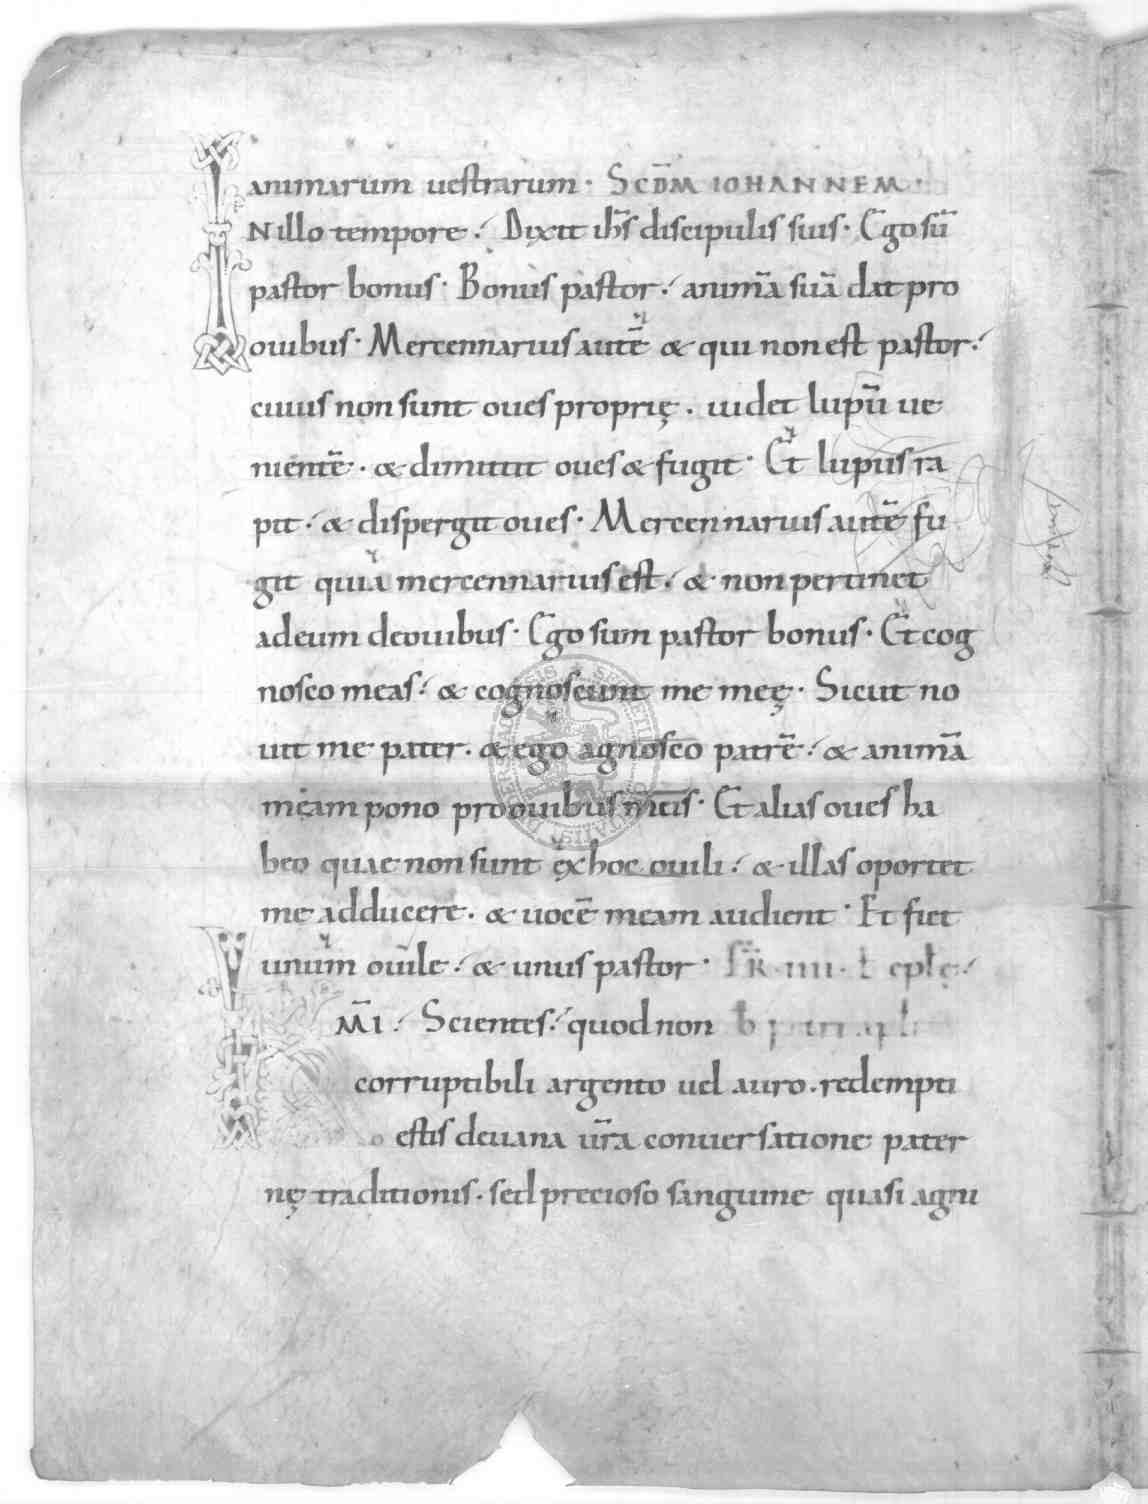 animarum uestrarum · SCD̄M IOHANNEM ·
IN illo tempore ; Dixit ihs̄ discipulis suis · Ego sū
pastor bonus · Bonus pastor ; animā suā dat pro
ouibus · Mercennarius autē & qui non est pastor ;
cuius non sunt oues proprię . uidet lupū ue
nientē . & dimittit oues & fugit · Et lupus ra
pit ; & dispergit oues · Mercennarius autē fu
git quia mercennarius est ; & non pertinet
ad eum de ouibus · Ego sum pastor bonus · Et cog
nosco meas ; & cognoscunt me meę · Sicut no
uit me pater . & ego agnosco patrē ; & animā
meam pono pro ouibus meis · Et alias oues ha
beo quae non sunt ex hoc ouili ; & illas oportet
me adducere . & uocē meam audient · Et fiet
unum ouile ; & unus pastor · FR̄ · IIII ·
M̄I ; Scientes ; quod non
corruptibili argento uel auro . redempti
estis de uana ur̄a conuersatione pater
nę traditionis . sed precioso sanguine quasi agni